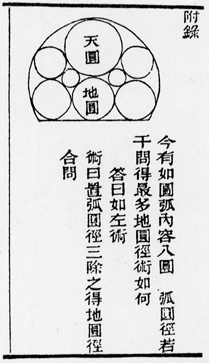 附錄
天圓
地圓
今有如圖弧內容八圓　弧圓徑若
干問得最多地圓徑術如何
答曰如左術
術曰置弧圓徑三除之得地圓徑
合問